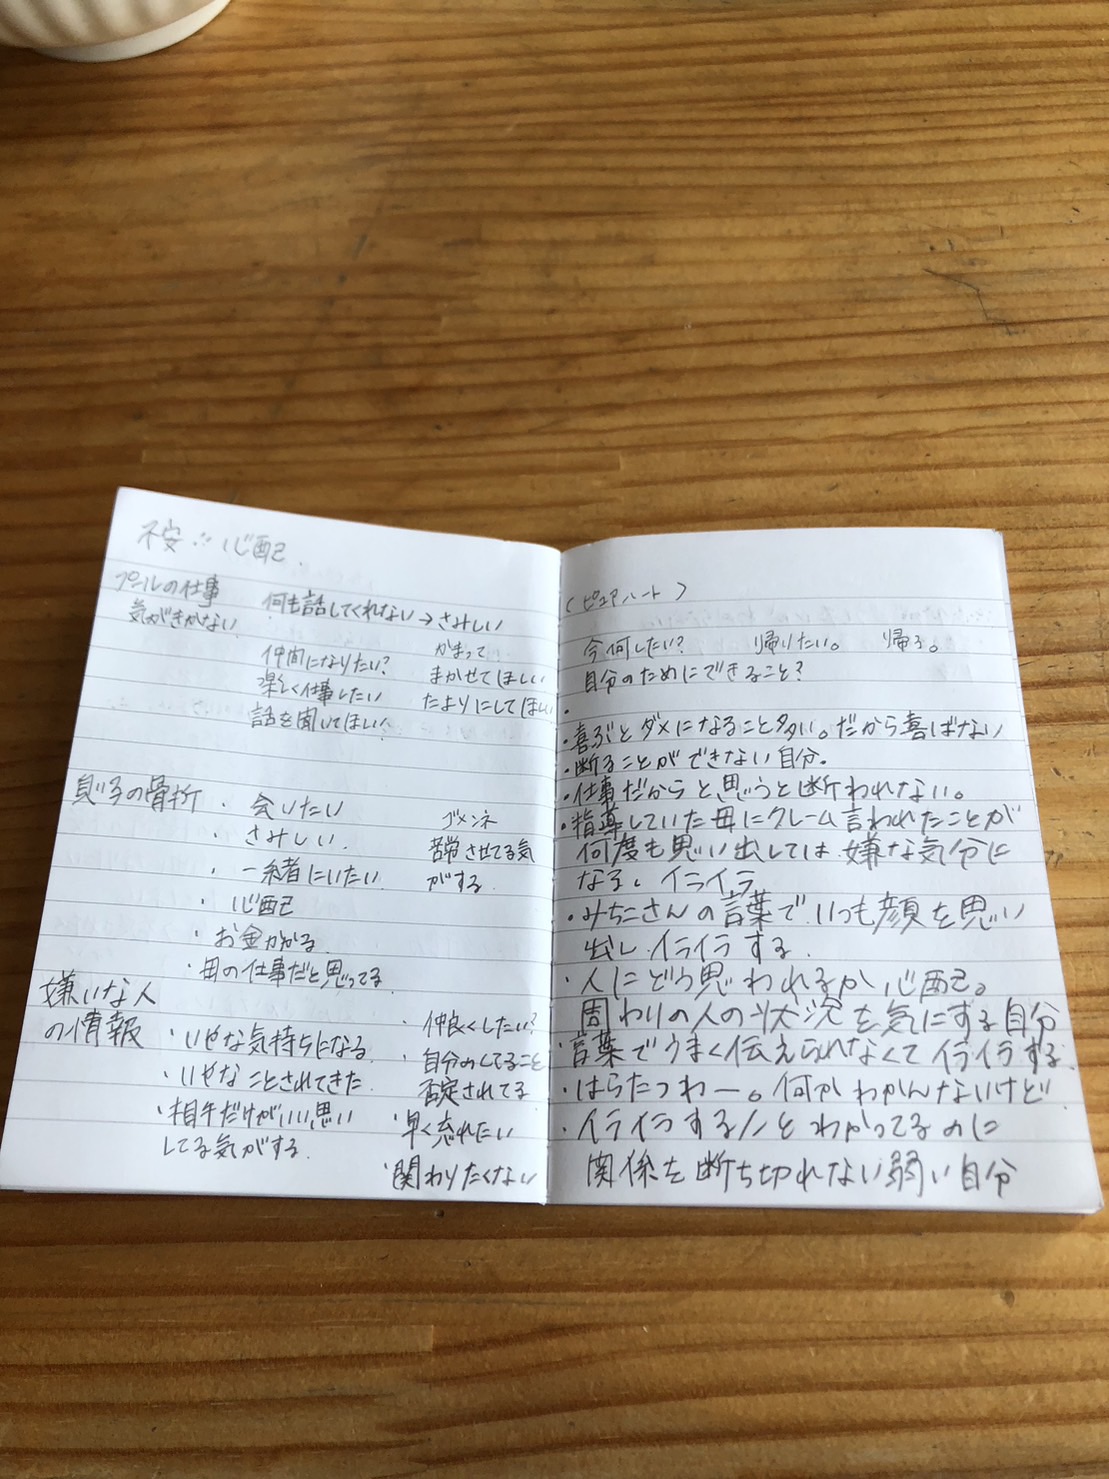 不安∴心配.
プールの仕事
気がきかない
何も話してくれない→さみしい
仲間になりたい?
楽しく仕事したい
話を聞いてほしい
かまって
まかせてほしい
たよりにしてほしい
の骨折
・会いたい
・さみしい.
・一緒にいたい.
・心配
・お金かかる
・母の仕事だと思ってる
ゴメンネ
苦労させてる気
がする.
嫌いな人
の情報
・いやな気持ちになる.
・いやなことされてきた.
・相手だけがいい思い
してる気がする.
・仲良くしたい?
・自分のしてること
否定されてる.
・早く忘れたい
・関わりたくない
(ピュアハート)
今何したい? 帰りたい。 帰ろ。
自分のためにできること?
・
・喜ぶとダメになること多い。だから喜ばない
・断ることができない自分.
・仕事だからと思うと断われない。
・指導していた母にクレーム言われたことが
何度も思い出しては嫌な気分に
なる、イライラ
・みちこさんの言葉でいつも顔を思い
出しイライラする.
・人にどう思われるか心配。
周わりの人の状況を気にする自分
・言葉でうまく伝えられなくてイライラする
・はらたつわー。何かわかんないけど
・イライラする人とわかってるのに
関係を断ち切れない弱い自分